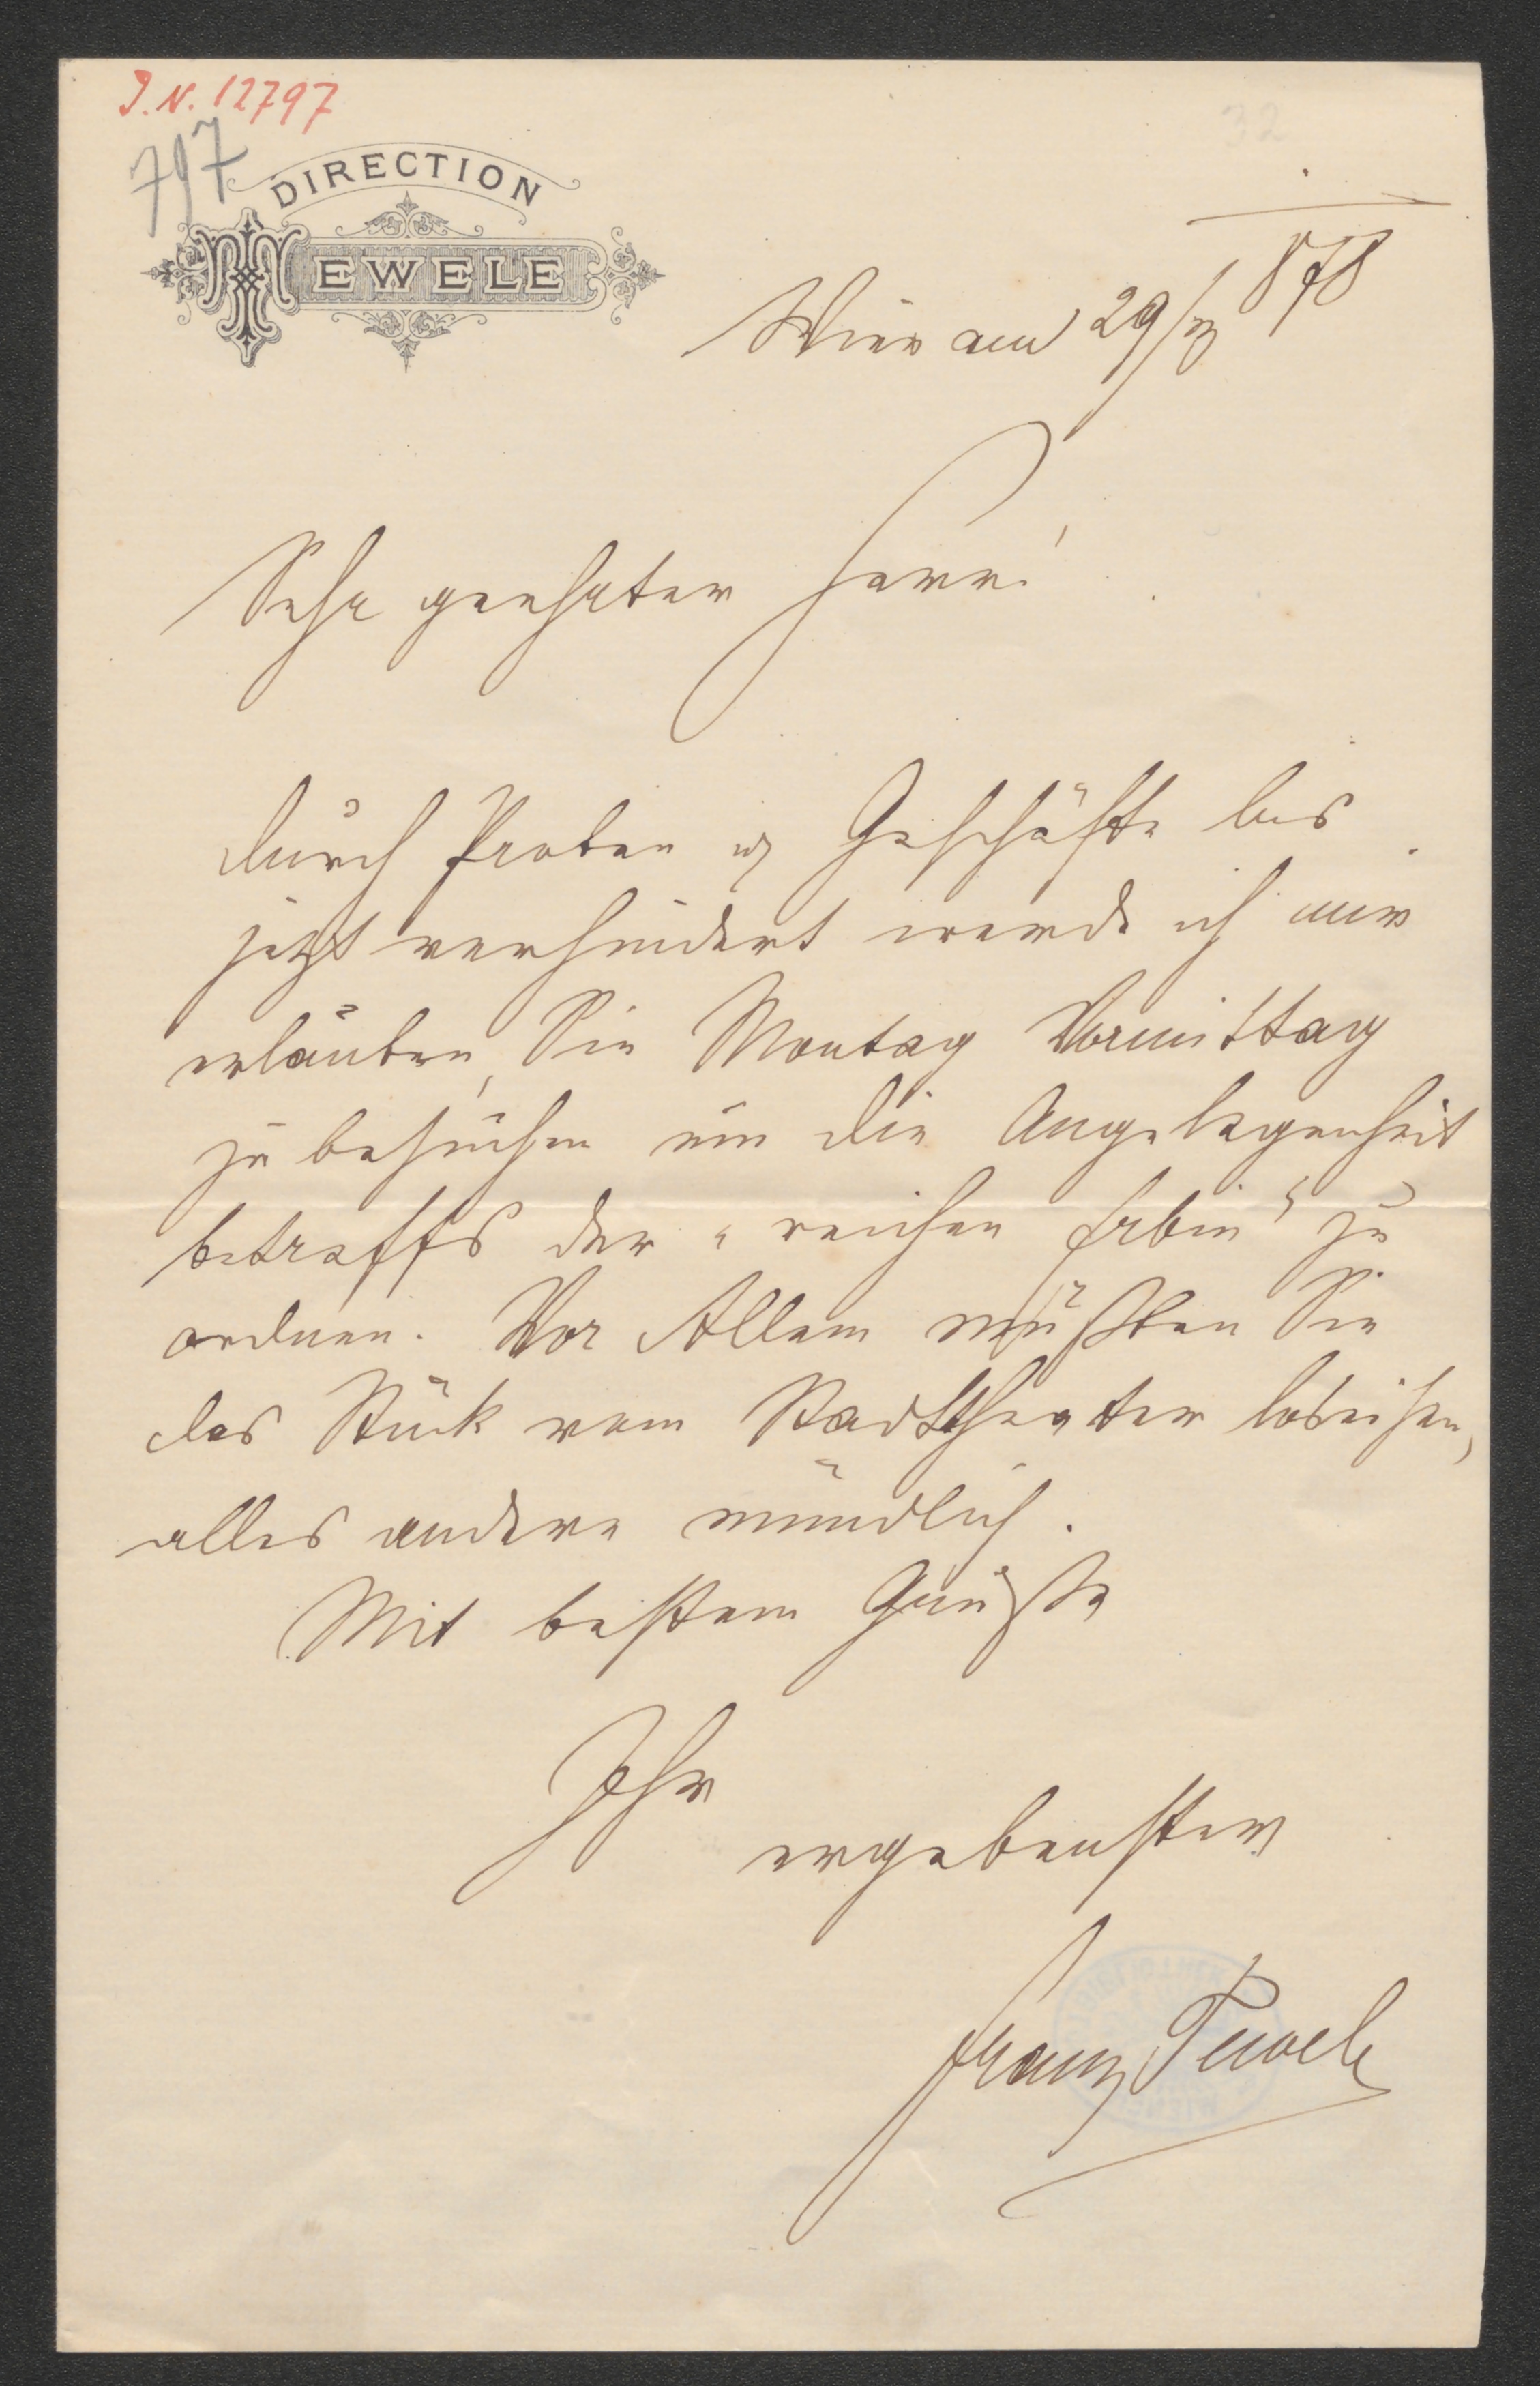 I.N. 12797
797
32
DIRECTION
TEWELE
Wien am 29/ 878
Sehr geehrter Herr!
durch Proben u Geschäfte bis
jetzt verhindert werde ich mir
erlauben, Sie Montag Vormittag
zu besuchen um die Angelegenheit
betreffs der "reichen Erbin" zu
ordnen. Vor Allem müßten Sie
das Stück vom Stadttheater loseisen,
alles andere mündlich.
Mit bestem Gruße
Ihr
ergebenster
Franz Tewele